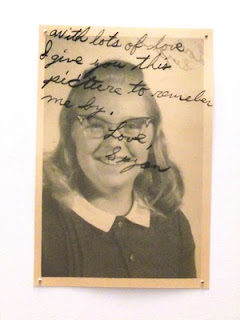 With lots of love
I give you this
picture to remember
me by.
Love